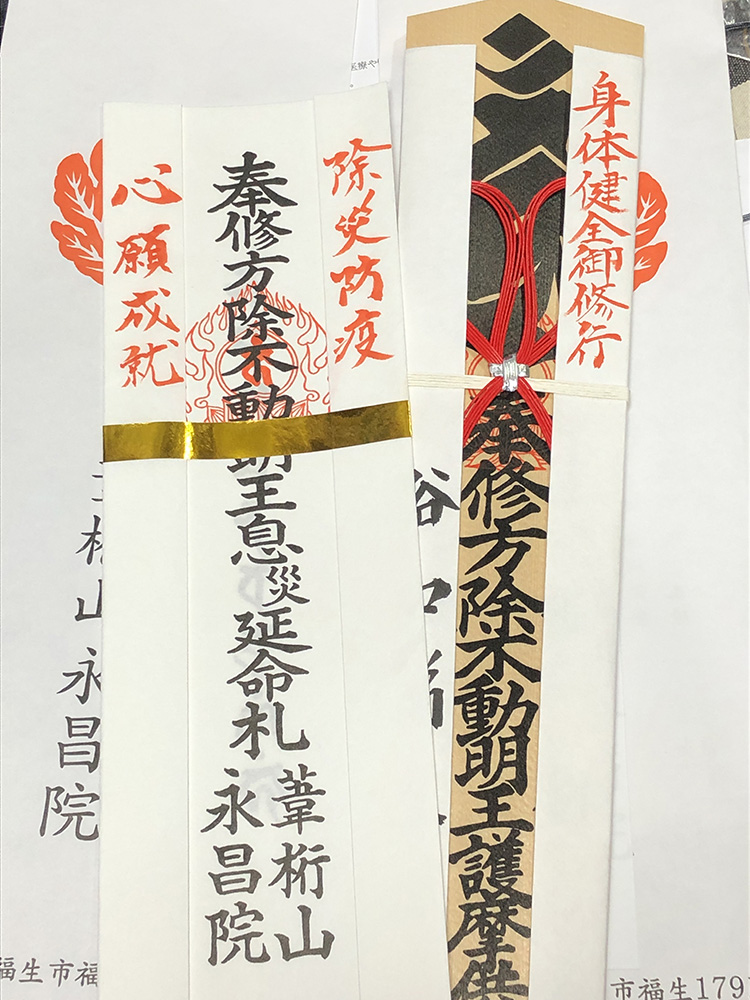 除災防疫
奉修方除不動明王息災延命札
心願成就
葦桁山
永昌院
身体健全御修行
奉修方除不動明王護摩供
桁山
永昌院
福生市福
市福生179
医療や